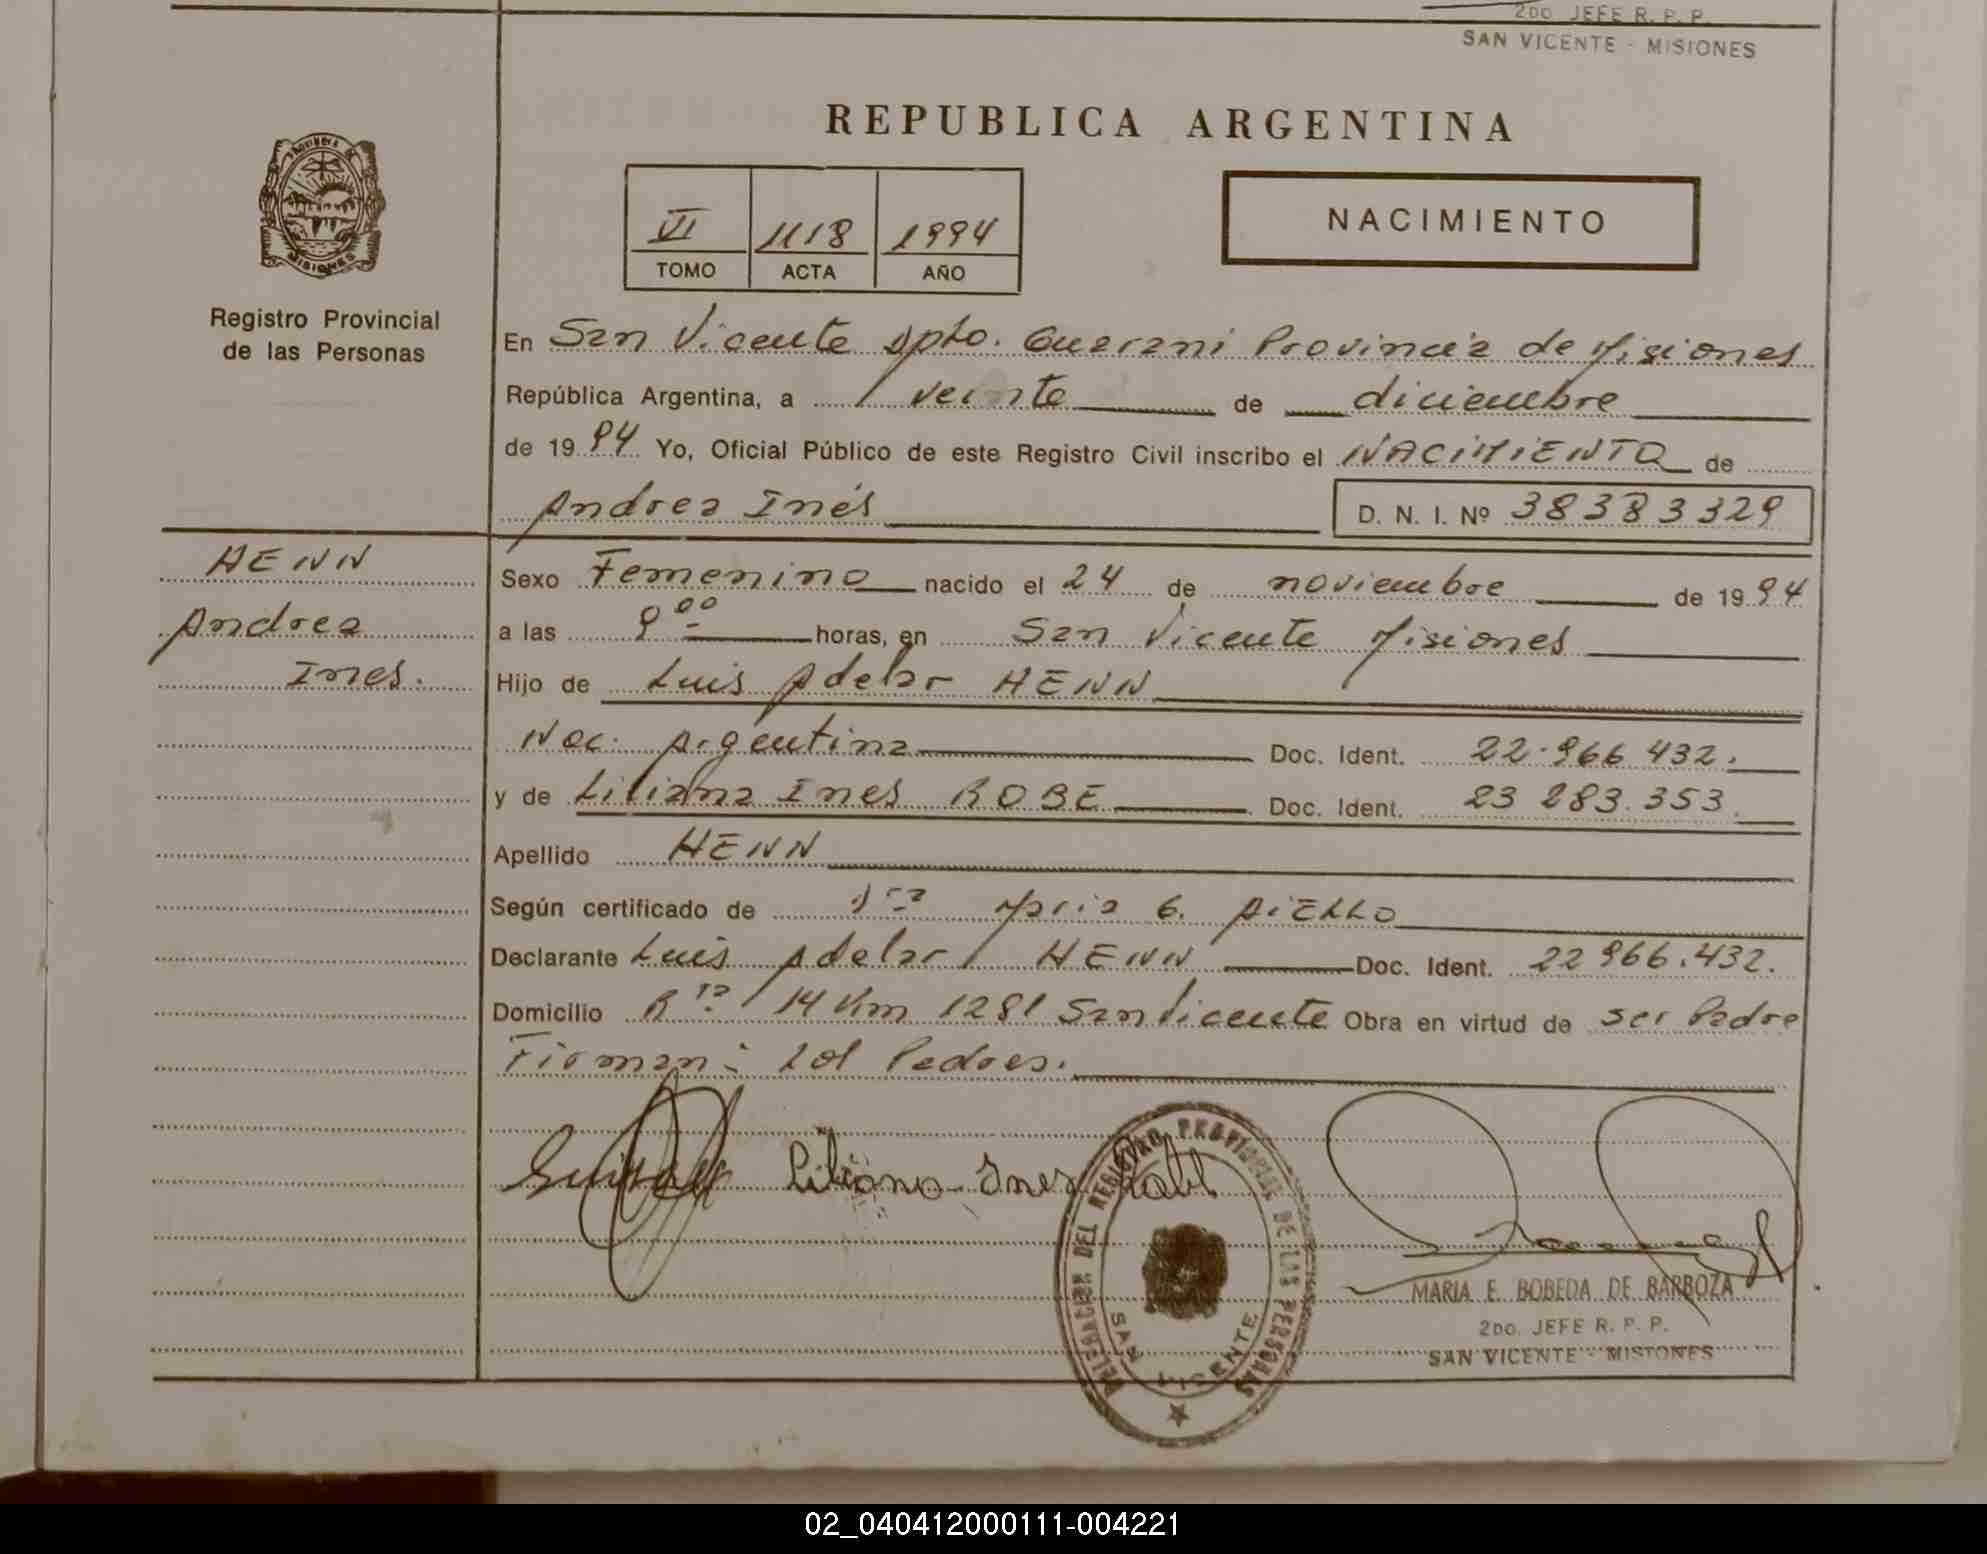 2DO. JEFE R. P. P.
SAN VICENTE - MISIONES
REPUBLICA ARGENTINA
VI 1118 1994
TOMO ACTA AÑO
NACIMIENTO
MISIONES
Registro Provincial
de las Personas
En San Vicente Dpto. Guarani Provincia de Misiones
República Argentina, a veinte de diciembre
de 1994 Yo, Oficial Público de este Registro Civil inscribo el NACIMIENTO de
Andrea Inés D. N. I. Nº 38383329
HENN
Andrea
Ines.
Sexo Femenino nacido el 24 de noviembre de 1994
a las 9 00 horas, en San Vicente Misiones
Hijo de Luis Adelar HENN
Nac. Argentina Doc. Ident. 22.966 432.
y de Liliana Ines ROBE Doc. Ident. 23 283.353.
Apellido HENN
Según certificado de Dra Maria G. AIELLO
Declarante Luis Adelar HENN Doc. Ident. 22 966.432.
Domicilio Rta 14 Km 1281 San Vicente Obra en virtud de ser Padre
Firman: Los Padres.
Liliana Ines
DELEGACION DEL REGISTRO PROVINCIAL DE LAS PERSONAS
SAN VICENTE
MARIA E. BOBEDA DE BARBOZA
2DO. JEFE R. P. P.
SAN VICENTE - MISIONES
02_040412000111-004221